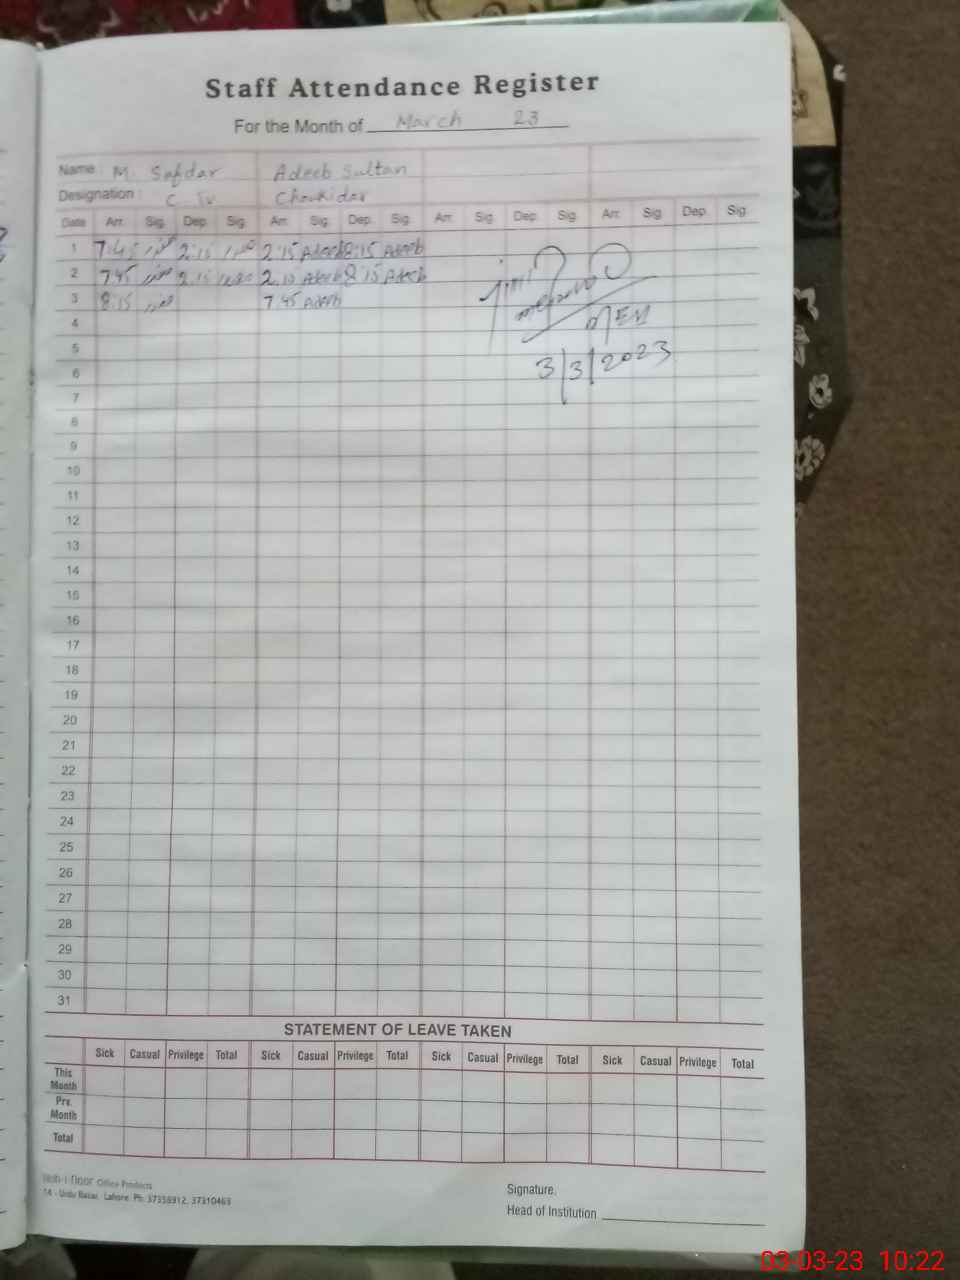 Staff Attendance Register
For the Month of March 23
Name : M. Safdar Adeeb Sultan
Designation : C. IV Chowkidar
Date Arr. Sig. Dep. Sig. Arr. Sig. Dep. Sig. Arr. Sig. Dep. Sig. Arr. Sig. Dep. Sig.
1 7:45 صفدر 2:15 صفدر 2:15 Adeeb 8:15 Adeeb
2 7:45 صفدر 2:15 صفدر 2:15 Adeeb 8:15 Adeeb
3 8:15 صفدر 7:45 Adeeb
MEA
3/3/2023
4
5
6
7
8
9
10
11
12
13
14
15
16
17
18
19
20
21
22
23
24
25
26
27
28
29
30
31
STATEMENT OF LEAVE TAKEN
Sick Casual Privilege Total Sick Casual Privilege Total Sick Casual Privilege Total Sick Casual Privilege Total
This Month
Prv. Month
Total
Office Products
14 - Urdu Bazar, Lahore. Ph: 37358912, 37310463
Signature,
Head of Institution
03-03-23 10:22